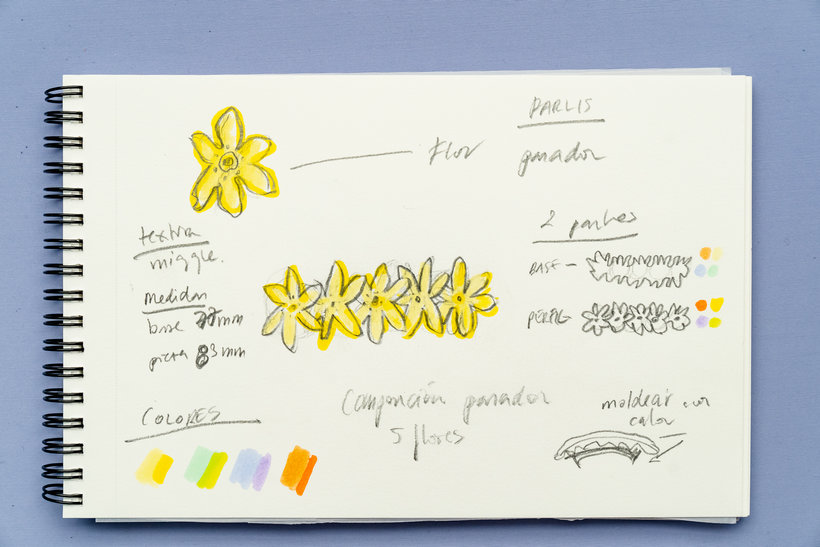 PARLIS
Flor
pasador
textura
miggle.
medidas
base 77mm
pieza 83mm
2 partes
BASE -
PERFIL
COLORES
Composición pasador
5 flores
moldear con
calor